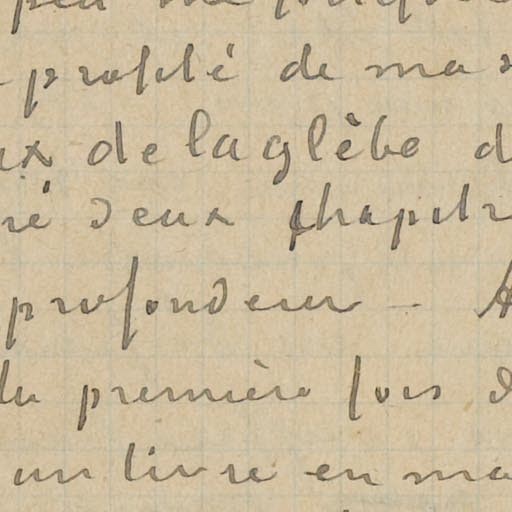 profité de ma
de la glèbe d
ré deux chapitr
profondeur - A
la première fois d
un livre en ma